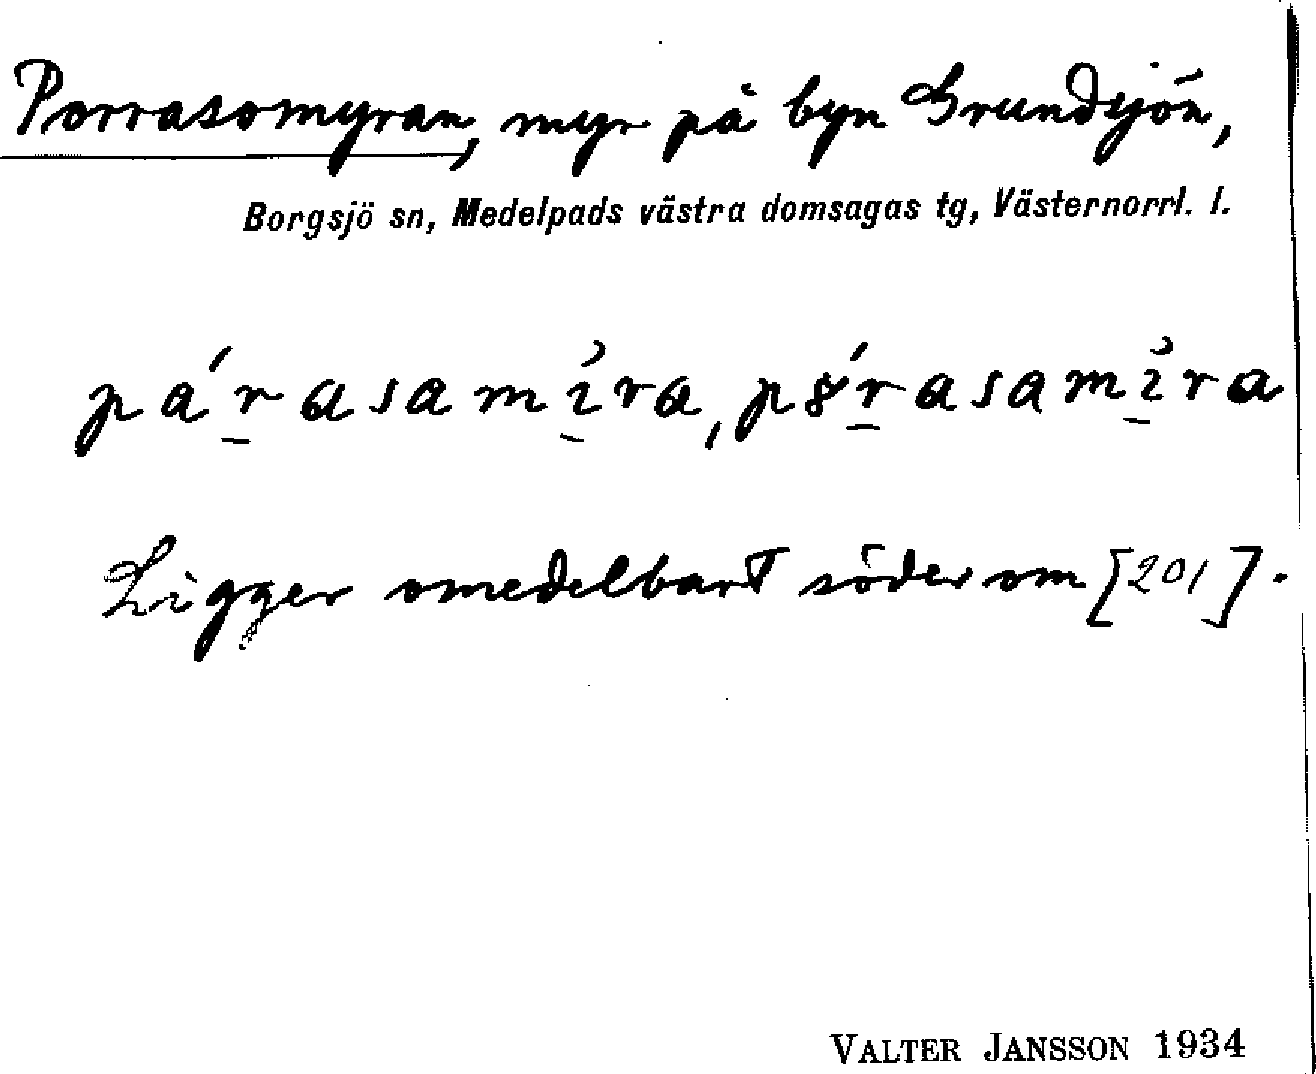 Porrasomyran, myr på byn Grundsjön,
Borgsjö sn, Medelpads västra domsagas tg, Västernorrl. l.
pá́r̲asamı̲̉ra, p8́r̲asamı̲̉ra
Ligger omedelbart söder om [201].
VALTER JANSSON 1934